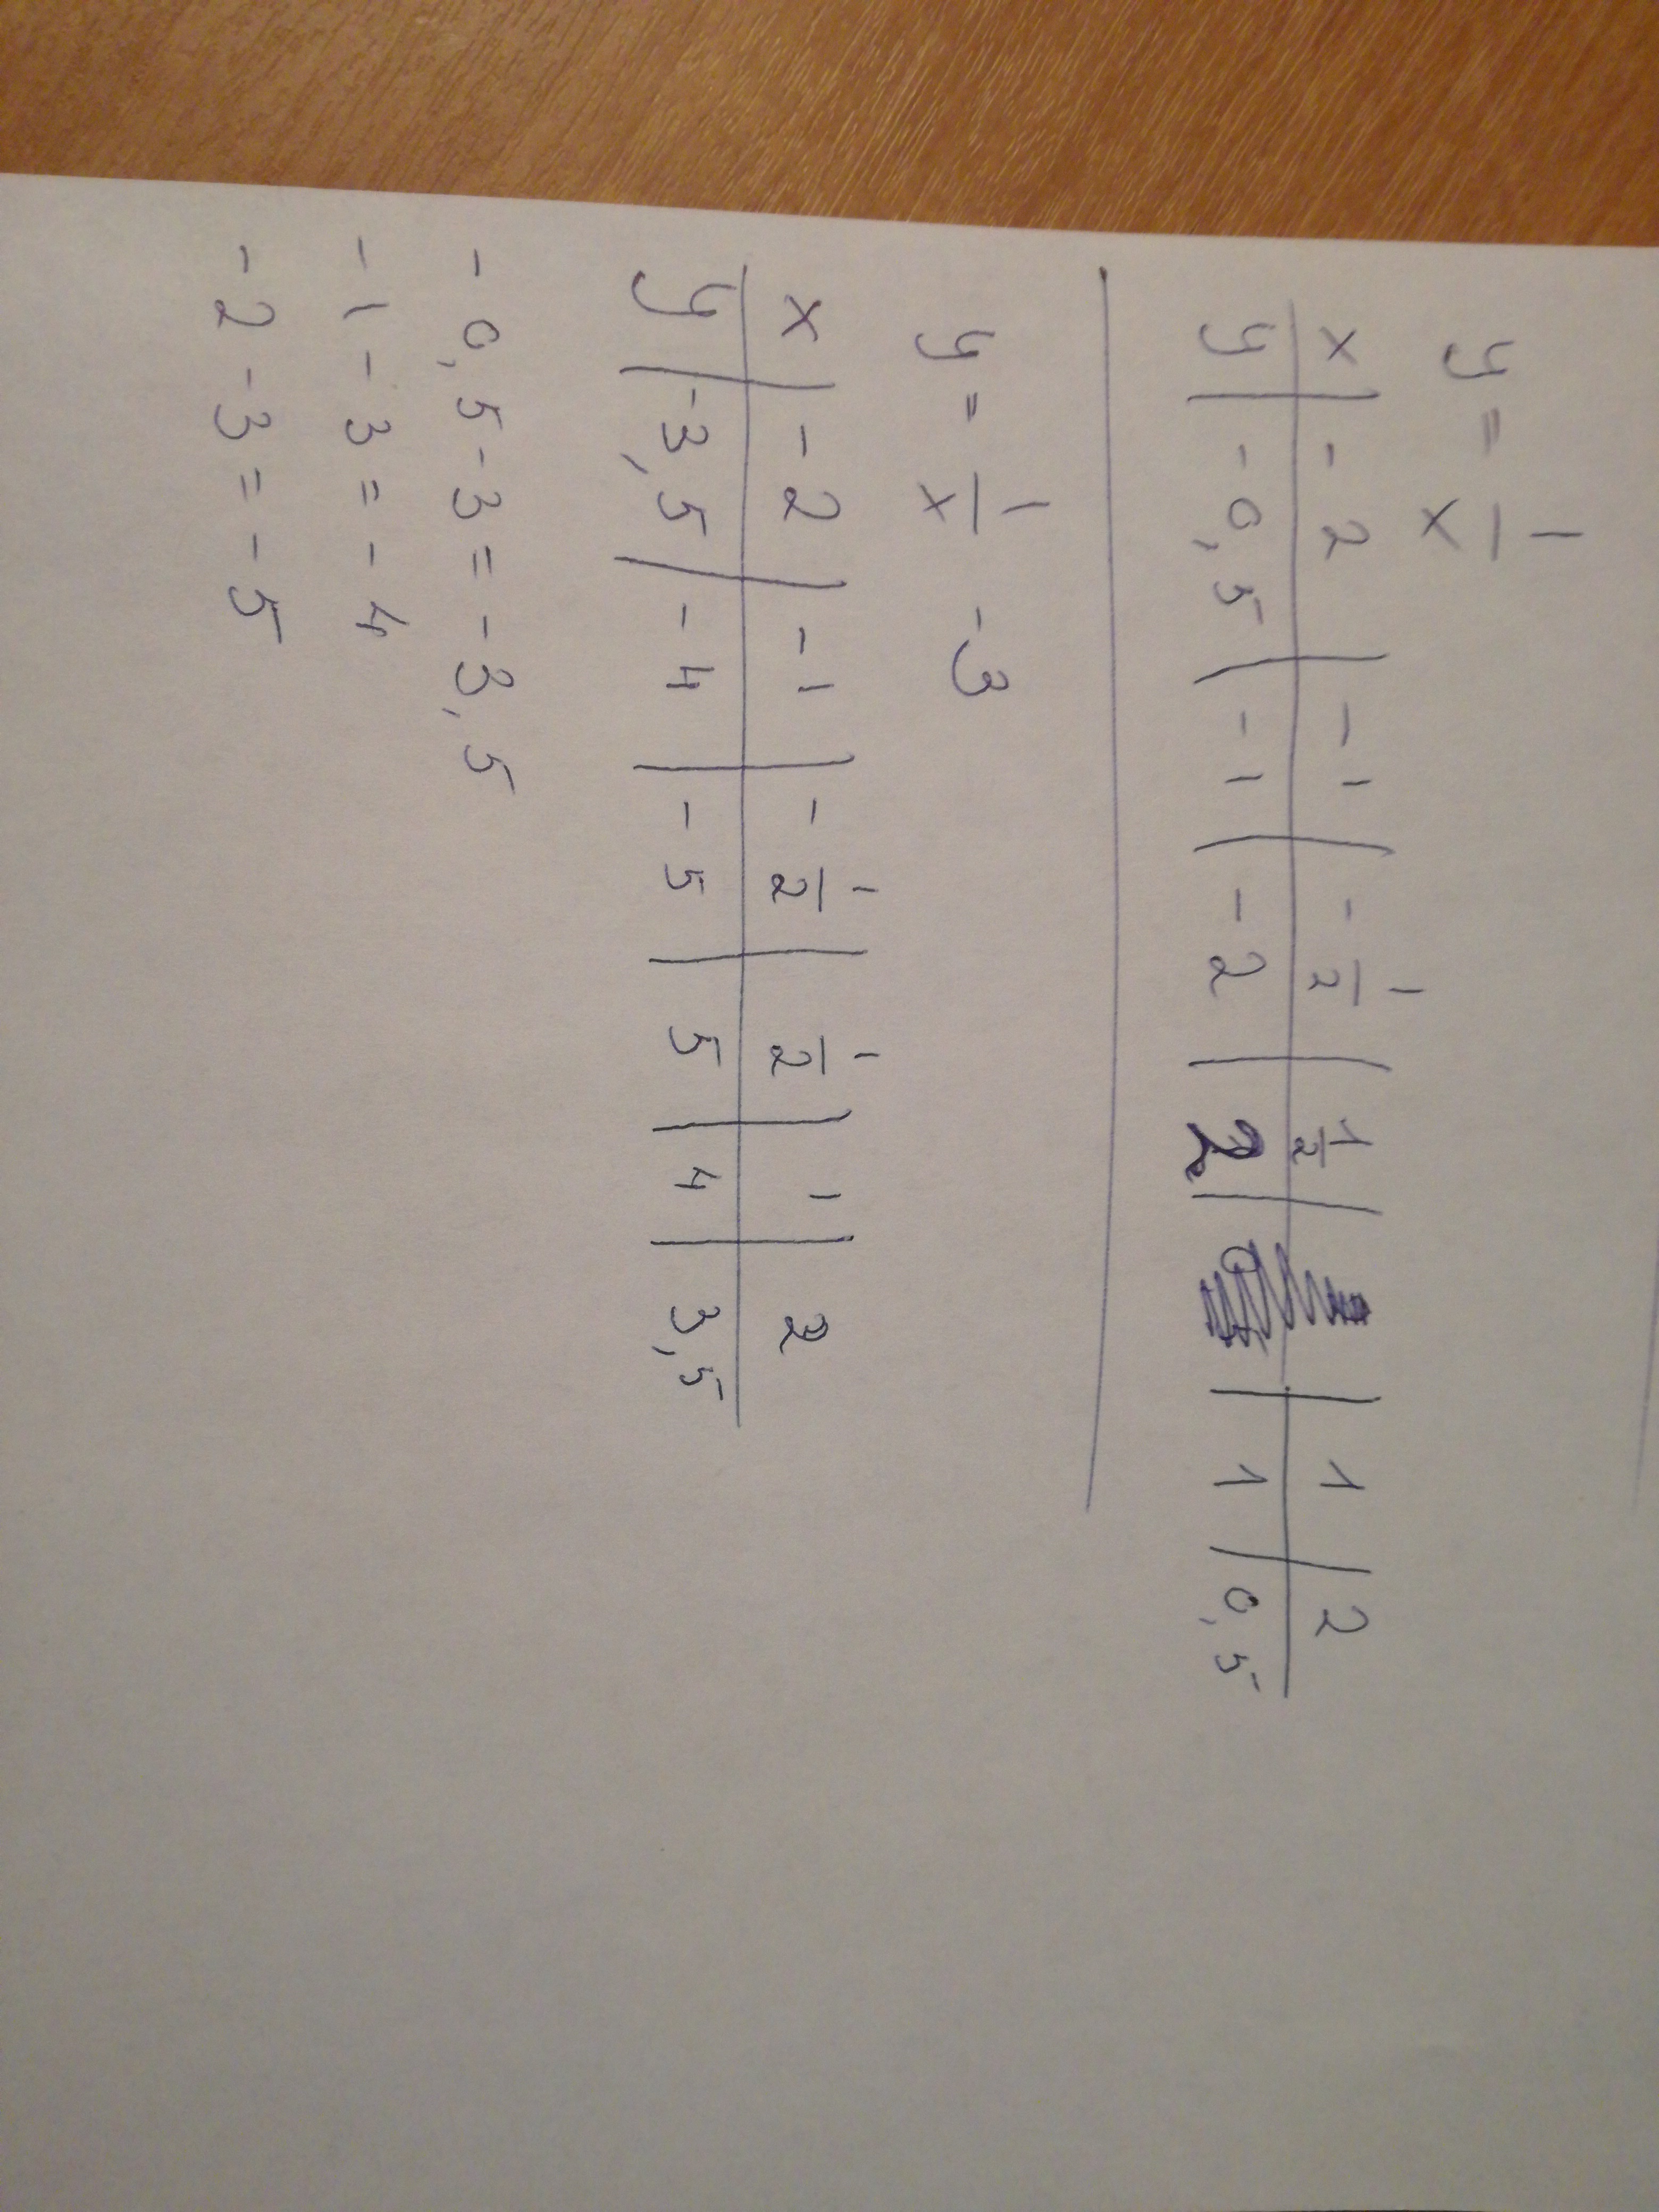 y = 1/x
x | -2 | -1 | -1/2 | 1/2 | 1 | 2
y | -0,5 | -1 | -2 | 2 | 1 | 0,5
y = 1/x -3
x | -2 | -1 | -1/2 | 1/2 | 1 | 2
y | -3,5 | -4 | -5 | 5 | 4 | 3,5
-0,5-3=-3,5
-1-3=-4
-2-3=-5